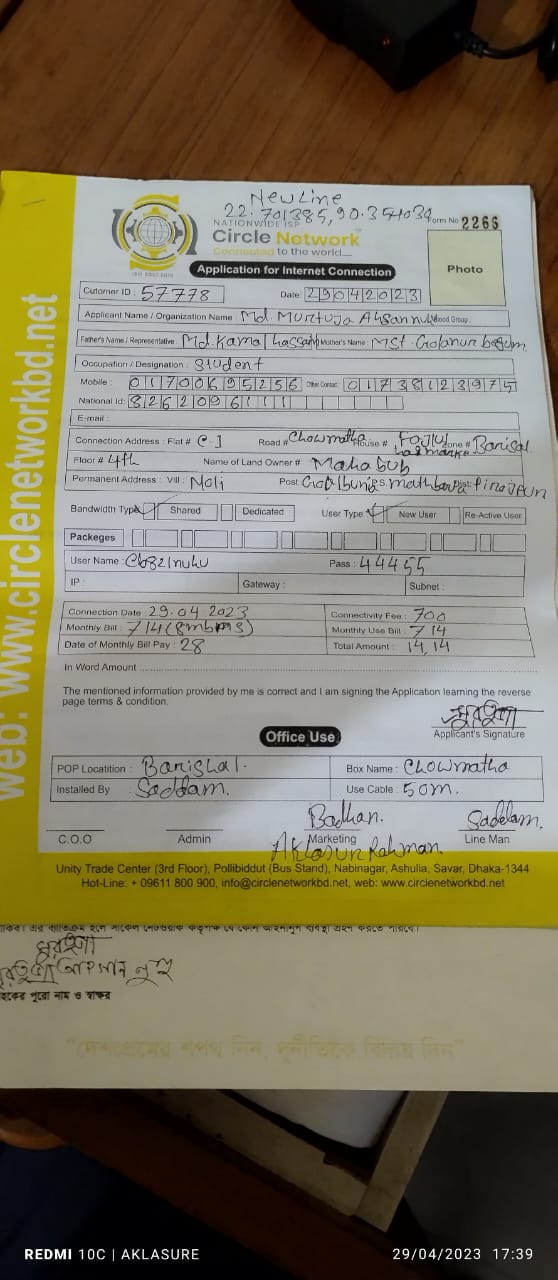 New Line
22.701385,90.354034
NATIONWIDE ISP
Form No 2266
Circle Network
Connected to the world....
ISO 9001:2015
Photo
Application for Internet Connection
Cutomer ID : 57778 Date: 29042023
Applicant Name / Organization Name : Md. Murtuja Ahsannul Blood Group :
Father's Name / Representative : Md. Kamal Hassain Mother's Name : Mst. Golanur begum
Occupation / Designation : Student
Mobile : 01700695256 Other Contact : 01738123975
National Id: 8262096111
E-mail :
Connection Address : Flat # C-1 Road # Chowmatha House # Zone # Barisal
Floor # 4th Name of Land Owner # Mahabub
Permanent Address : Vill : Noli Post P.S. Dist Pirojpur
Bandwidth Type Shared Dedicated User Type New User Re-Active User
Packeges
User Name : Pass : 44455
IP : Gateway : Subnet :
Connection Date : 29.04.2023 Connectivity Fee : 700
Monthly Bill : 714 (8mbps) Monthly Use Bill : 714
Date of Monthly Bill Pay : 28 Total Amount : 14,14
In Word Amount
The mentioned information provided by me is correct and I am signing the Application learning the reverse
page terms & condition.
Applicant's Signature
Office Use
POP Locatition : Barishal. Box Name : Chowmatha
Installed By : Saddam. Use Cable : 50m.
Badhan. Saddam.
C.O.O Admin Marketing Line Man
Aklasur Rahman.
Unity Trade Center (3rd Floor), Pollibiddut (Bus Stand), Nabinagar, Ashulia, Savar, Dhaka-1344
Hot-Line: + 09611 800 900, info@circlenetworkbd.net, web: www.circlenetworkbd.net
web: www.circlenetworkbd.net
হকের পুরো নাম ও স্বাক্ষর
"দেশপ্রেমের শপথ নিন, দুর্নীতিকে বিদায় দিন"
REDMI 10C | AKLASURE 29/04/2023 17:39